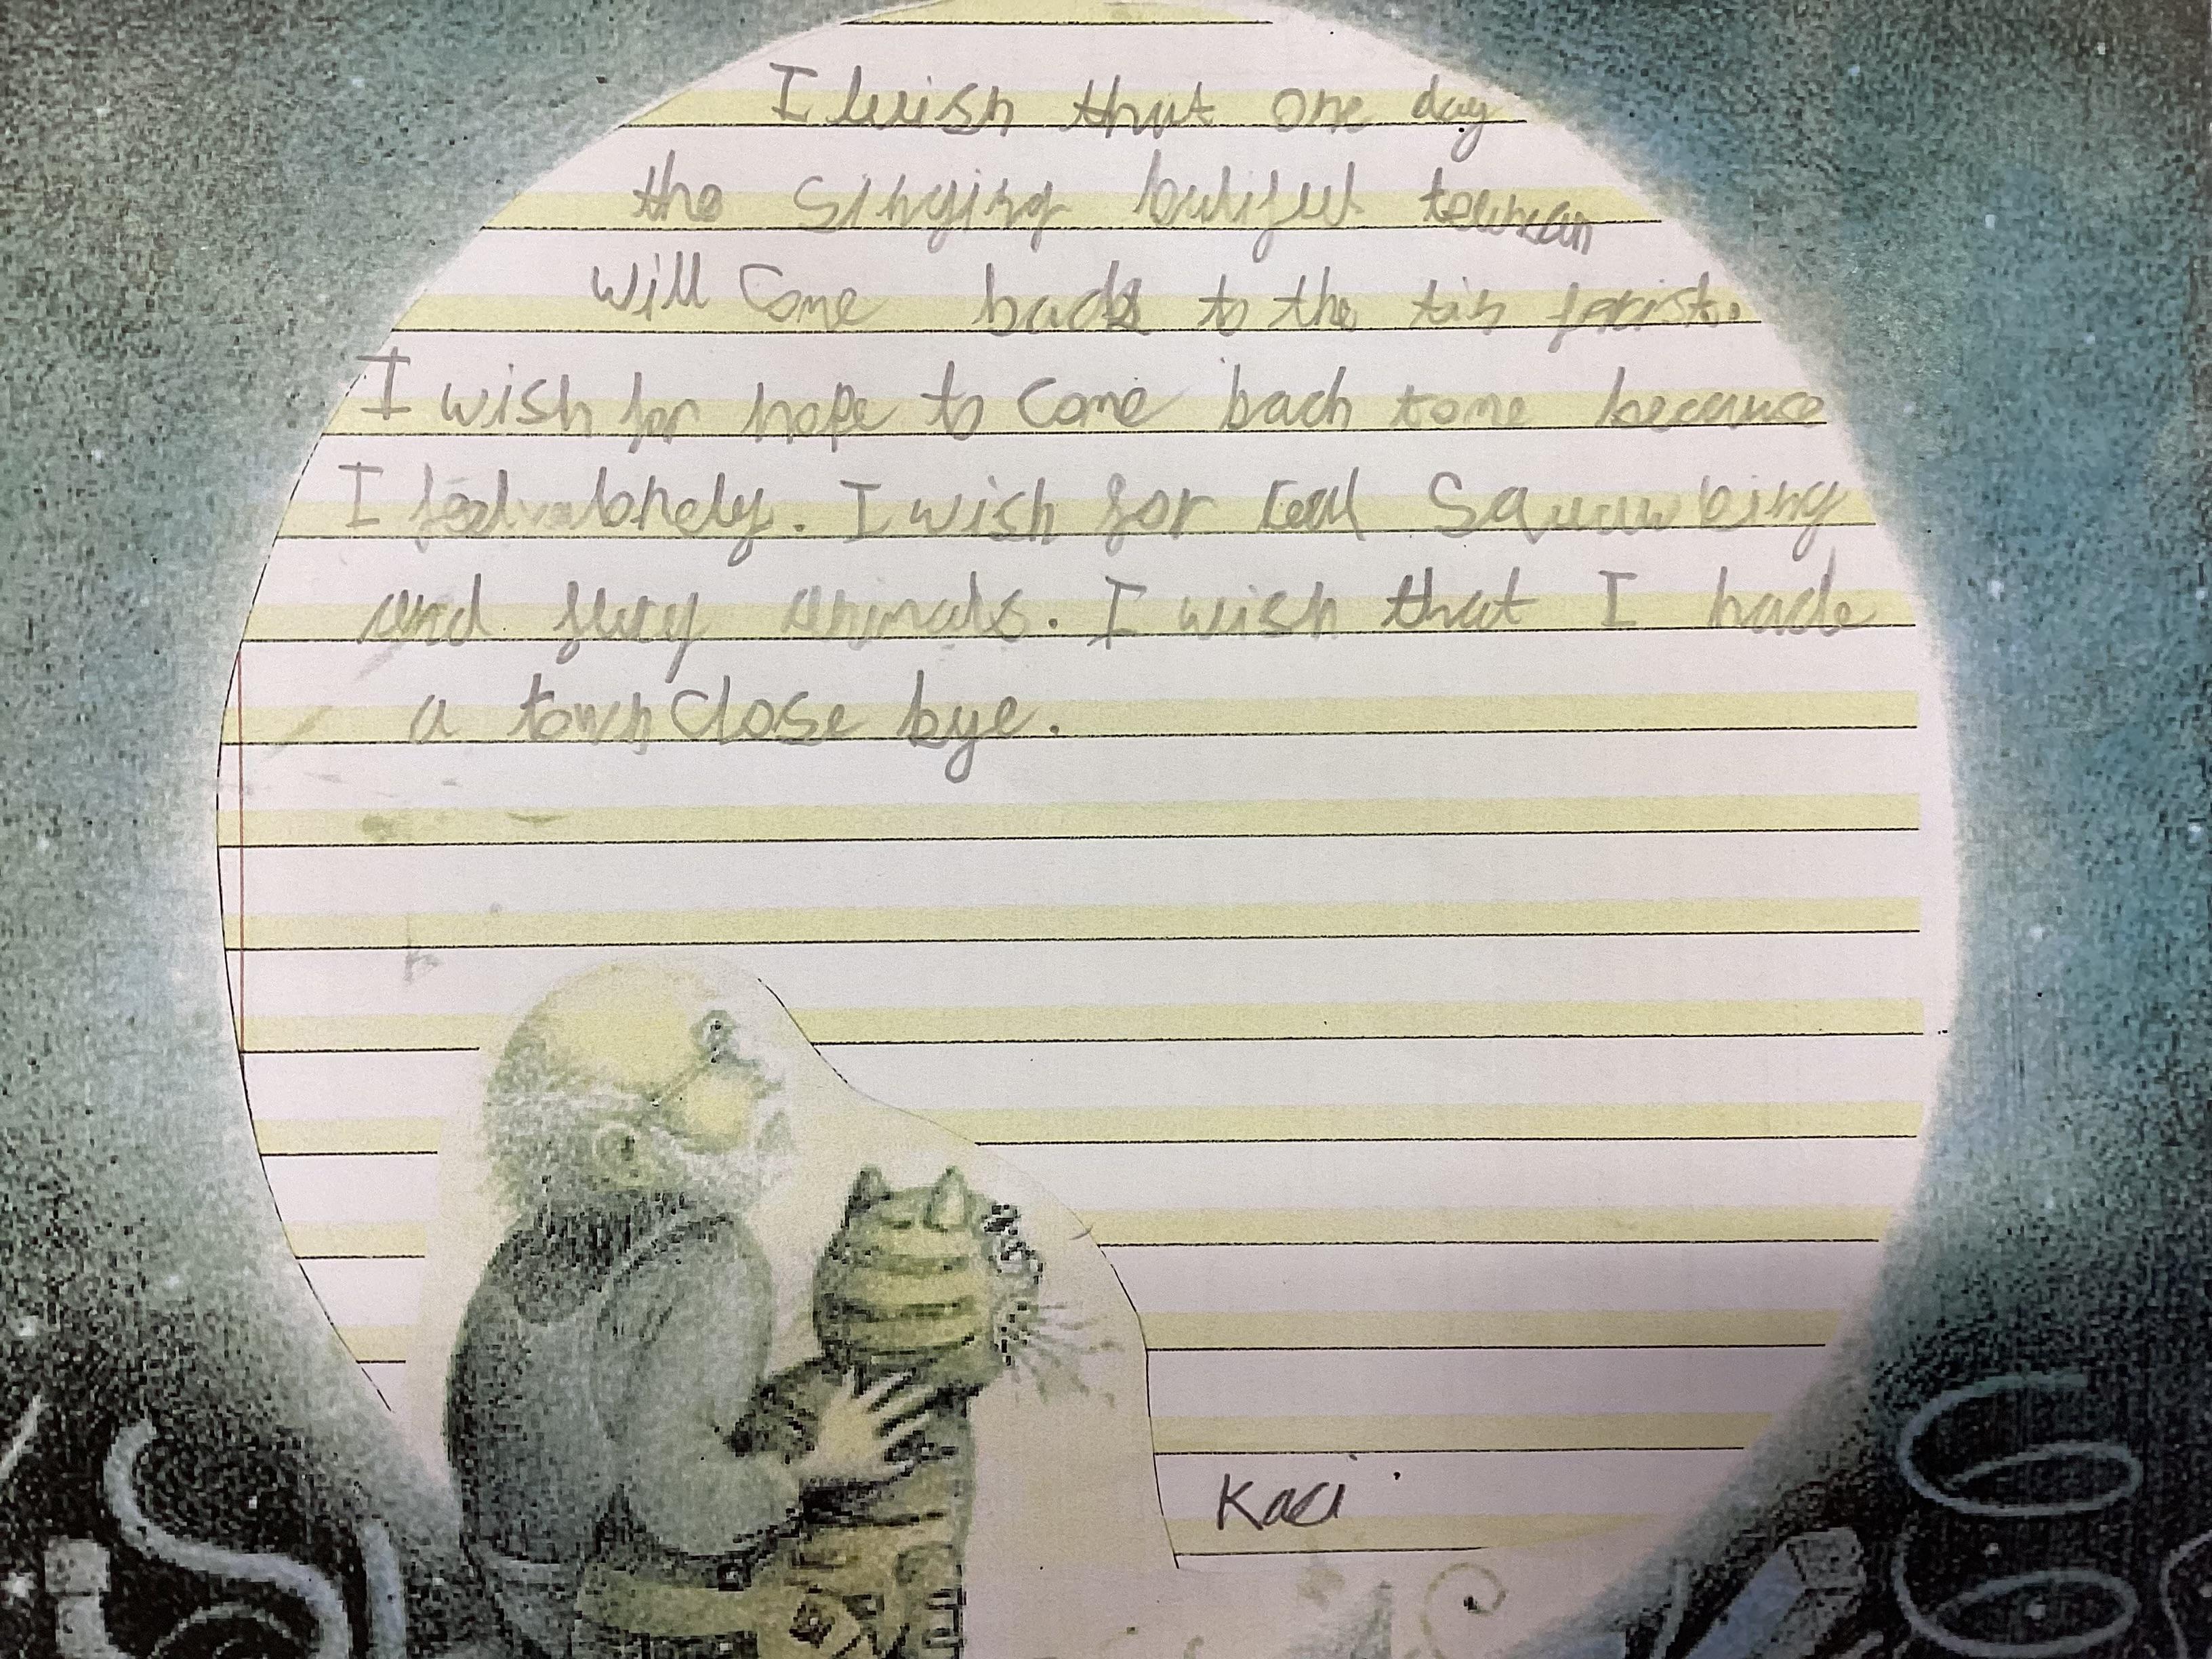 I wish that one day
the singing butiful tewcan
will come back to the tin forist.
I wish for hope to come bach to me because
I feel lonely. I wish for real
and animals. I wish that I hade
a town close bye.
Kaci